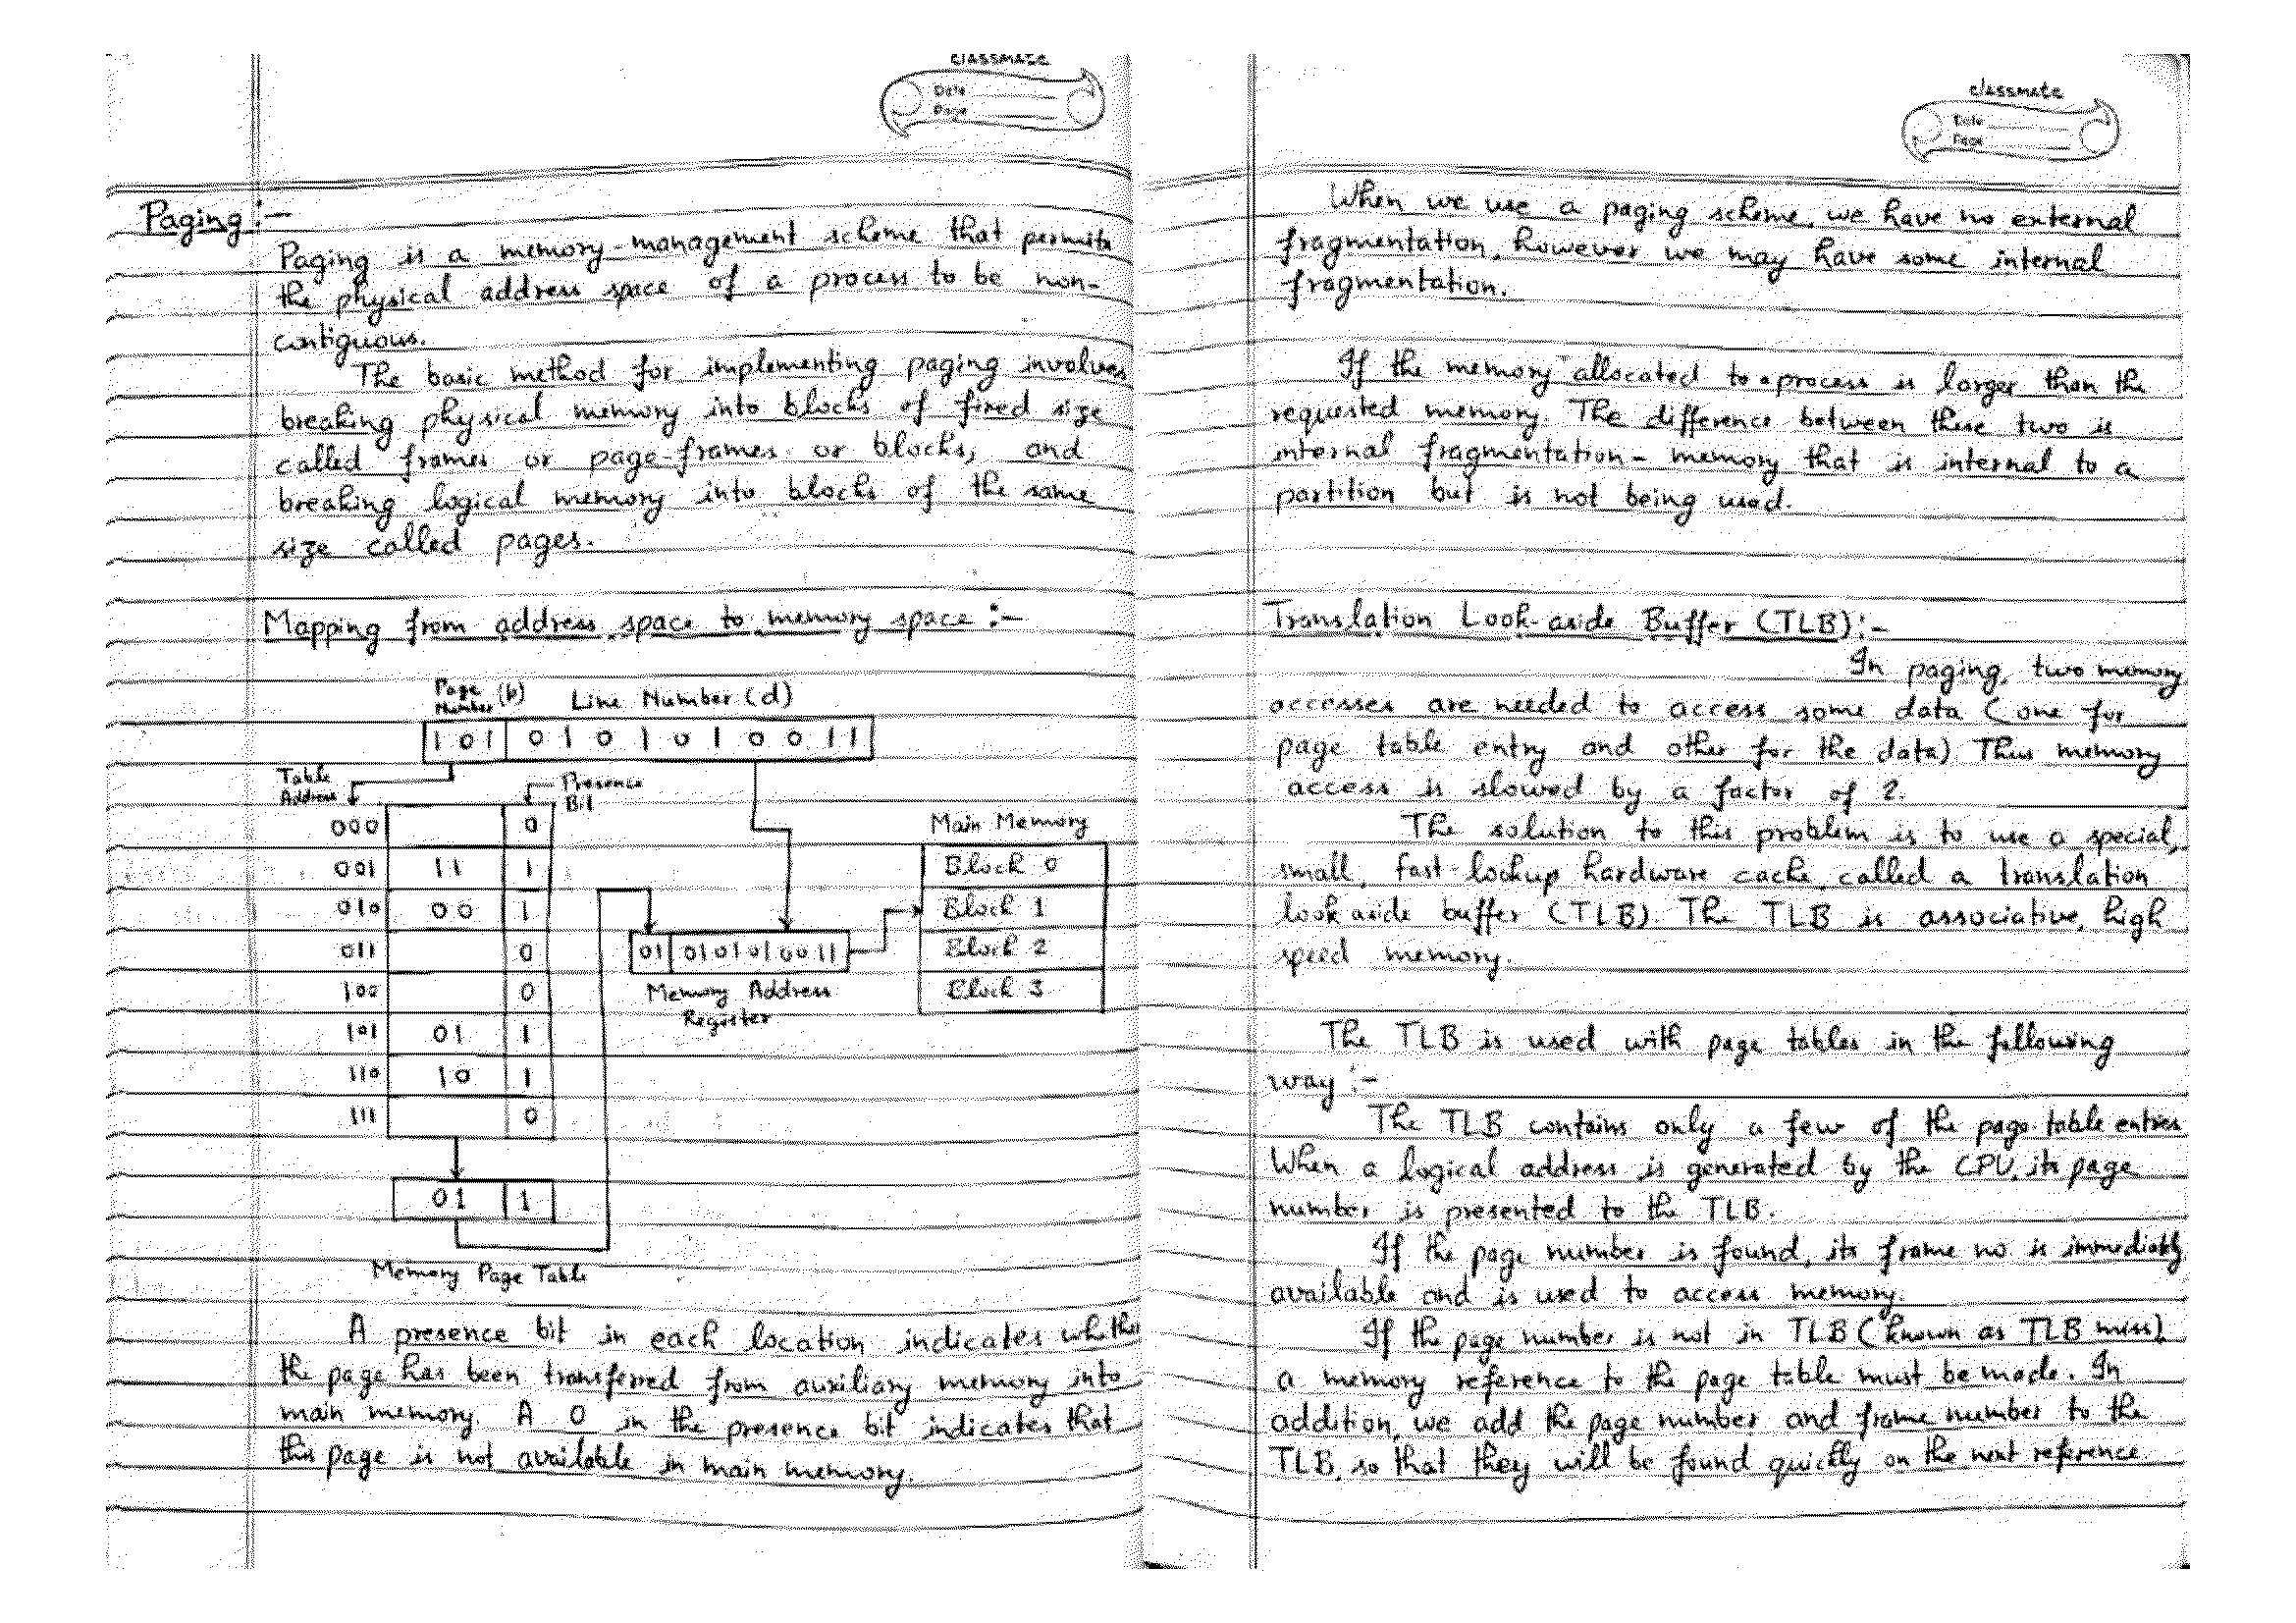 classmate
Date
Page
Paging :-
Paging is a memory-management scheme that permits
the physical address space of a process to be non-
contiguous.
The basic method for implementing paging involves
breaking physical memory into blocks of fixed size
called frames or page-frames or blocks, and
breaking logical memory into blocks of the same
size called pages.
Mapping from address space to memory space :-
Page Number (p) Line Number (d)
1 0 1 0 1 0 1 0 1 0 0 1 1
Table Address
Presence Bit
000 0
001 11 1
010 00 1
011 0
100 0
101 01 1
110 10 1
111 0
01 1
Memory Page Table
01 0101010011
Memory Address
Register
Main Memory
Block 0
Block 1
Block 2
Block 3
A presence bit in each location indicates whether
the page has been transferred from auxiliary memory into
main memory. A 0 in the presence bit indicates that
this page is not available in main memory.
classmate
Date
Page
When we use a paging scheme, we have no external
fragmentation, however we may have some internal
fragmentation.
If the memory allocated to a process is larger than the
requested memory. The difference between these two is
internal fragmentation - memory that is internal to a
partition but is not being used.
Translation Look-aside Buffer (TLB):-
In paging, two memory
accesses are needed to access some data (one for
page table entry and other for the data). Thus memory
access is slowed by a factor of 2.
The solution to this problem is to use a special,
small, fast-lookup hardware cache, called a translation
look aside buffer (TLB). The TLB is associative, high
speed memory.
The TLB is used with page tables in the following
way :-
The TLB contains only a few of the page-table entries
When a logical address is generated by the CPU, its page
number is presented to the TLB.
If the page number is found, its frame no is immediately
available and is used to access memory.
If the page number is not in TLB (known as TLB miss)
a memory reference to the page table must be made. In
addition, we add the page number and frame number to the
TLB, so that they will be found quickly on the next reference.